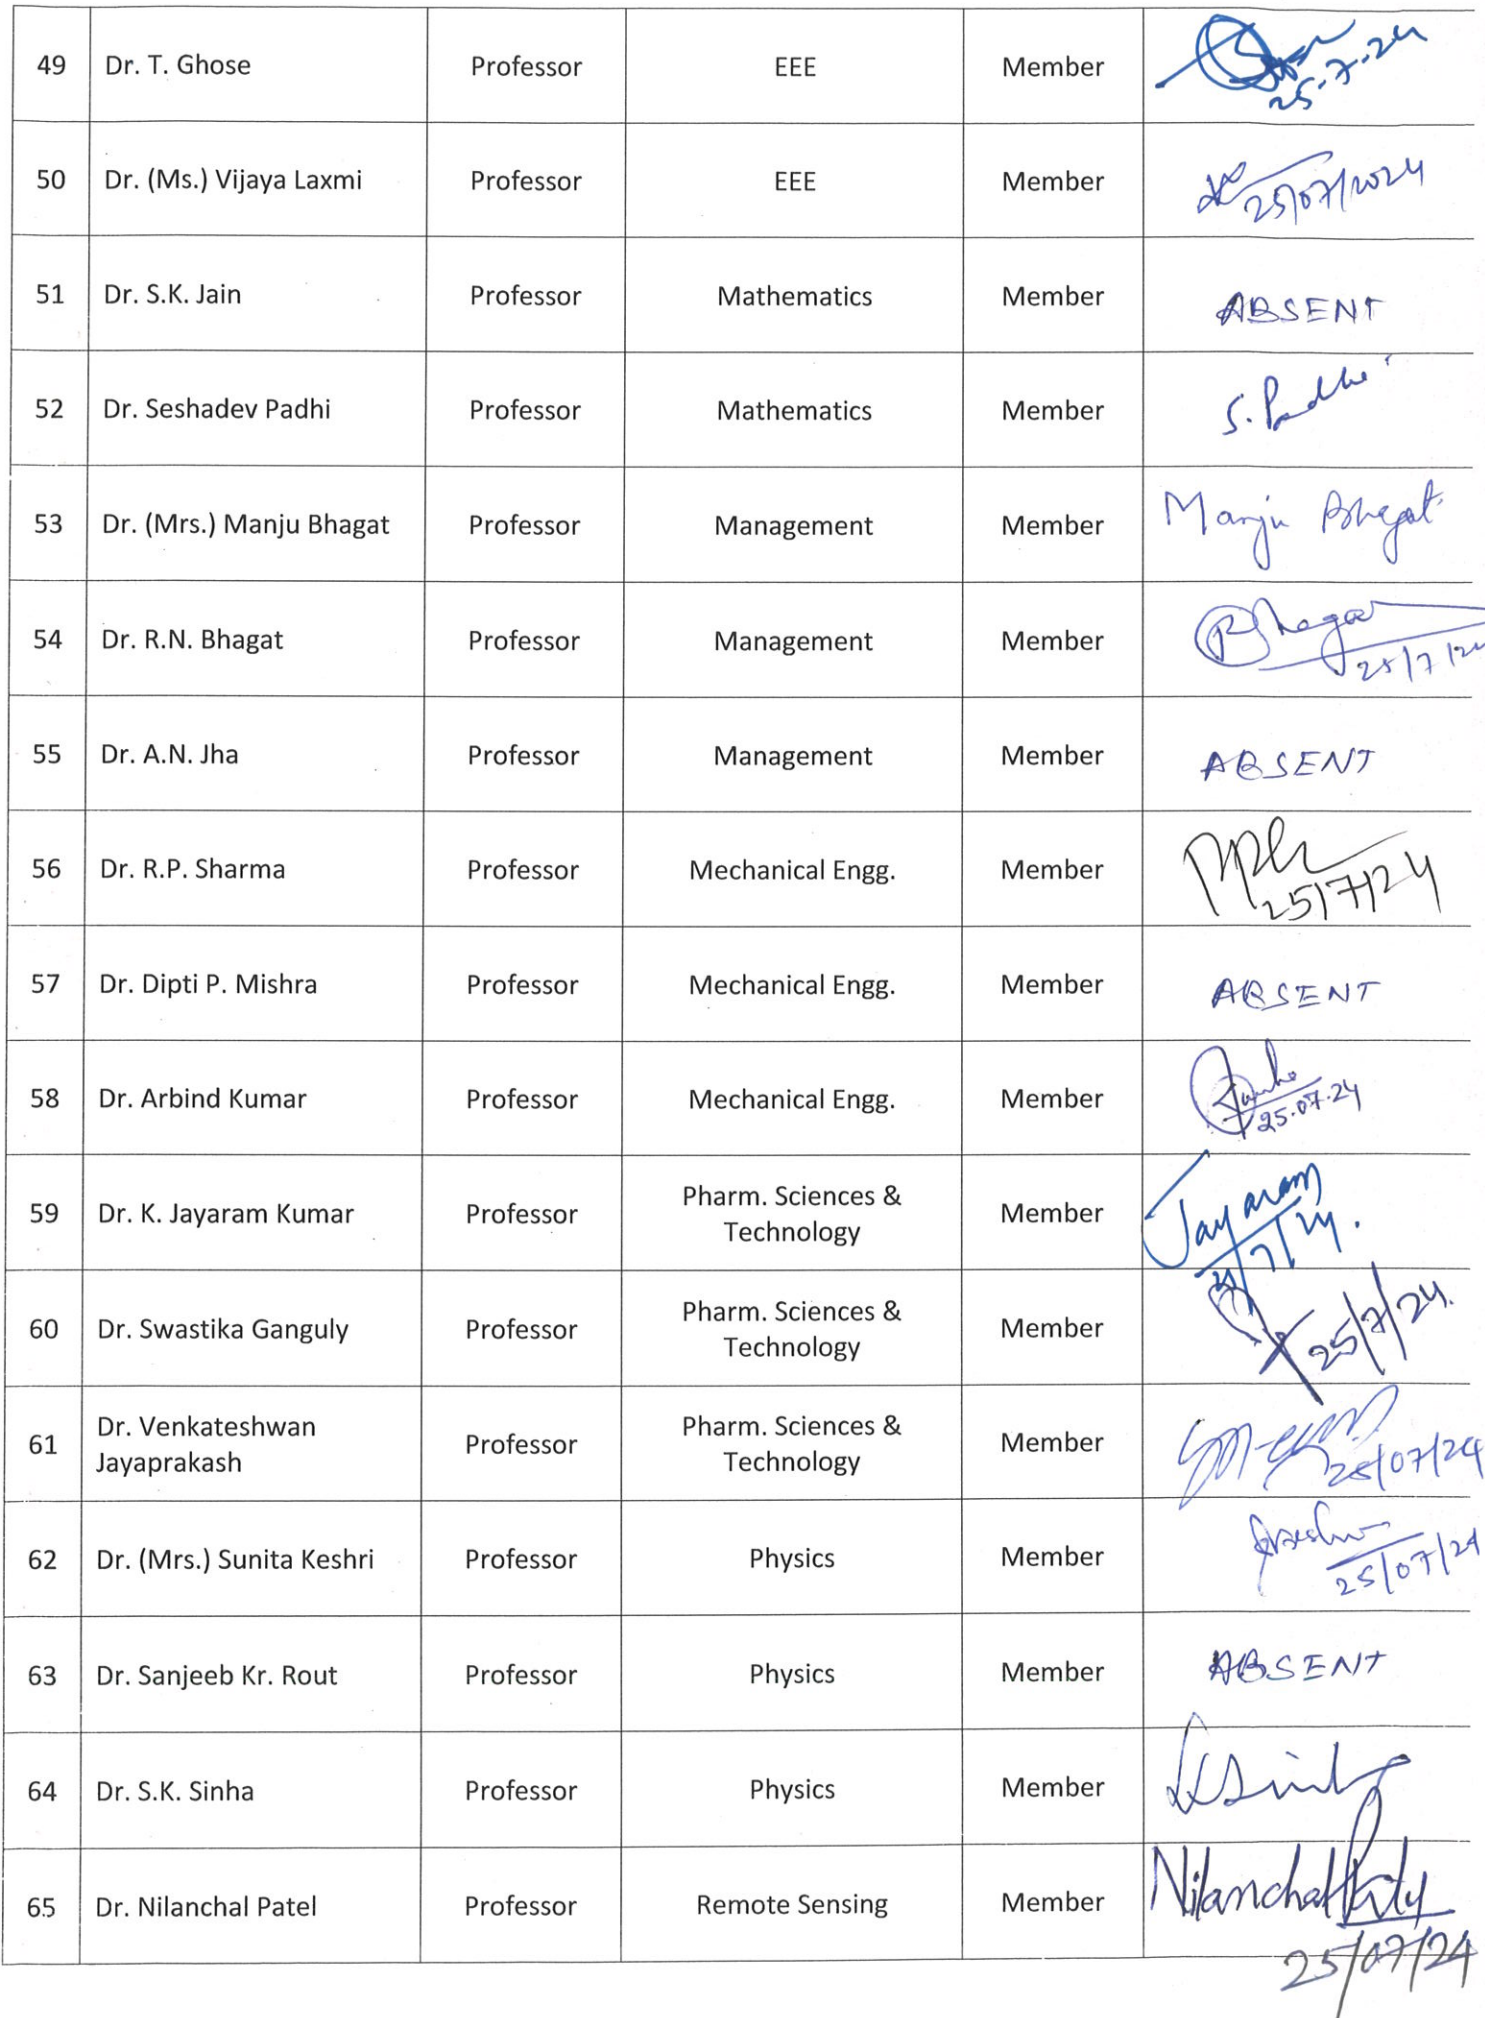 49 Dr. T. Ghose Professor EEE Member 25-7-24
50 Dr. (Ms.) Vijaya Laxmi Professor EEE Member 25/07/2024
51 Dr. S.K. Jain Professor Mathematics Member ABSENT
52 Dr. Seshadev Padhi Professor Mathematics Member S. Padhi
53 Dr. (Mrs.) Manju Bhagat Professor Management Member Manju Bhagat
54 Dr. R.N. Bhagat Professor Management Member Bhagat 25/7/24
55 Dr. A.N. Jha Professor Management Member ABSENT
56 Dr. R.P. Sharma Professor Mechanical Engg. Member 25/7/24
57 Dr. Dipti P. Mishra Professor Mechanical Engg. Member ABSENT
58 Dr. Arbind Kumar Professor Mechanical Engg. Member 25.07.24
59 Dr. K. Jayaram Kumar Professor Pharm. Sciences & Member Jayaram
Technology /7/24.
60 Dr. Swastika Ganguly Professor Pharm. Sciences & Member 25/7/24.
Technology
61 Dr. Venkateshwan Professor Pharm. Sciences & Member 25/07/24
Jayaprakash Technology
62 Dr. (Mrs.) Sunita Keshri Professor Physics Member 25/07/24
63 Dr. Sanjeeb Kr. Rout Professor Physics Member ABSENT
64 Dr. S.K. Sinha Professor Physics Member
65 Dr. Nilanchal Patel Professor Remote Sensing Member Nilanchal
25/07/24